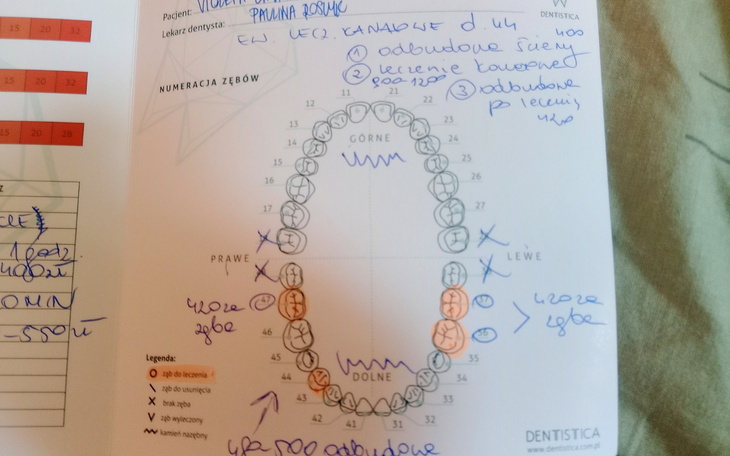 15 20 32
15 20 32
15 20 28
Z
1 godz.
400zł
0 MIN
-550zł
Pacjent:
Lekarz dentysta: PAULINA
DENTISTICA
EW. LECZ. KANAŁOWE d. 44
400
① odbudowa ściany
② leczenie kanałowe
900-1200
③ odbudowa
po leczeniu
420
NUMERACJA ZĘBÓW
11 21
12 22
13 23
GÓRNE
14 24
15 25
16 26
17 27
PRAWE LEWE
47 37
420 za
zęba
420 za
zęba
46 36
45 35
DOLNE
44 34
43 33
42 32
41 31
Legenda:
ząb do leczenia
ząb do usunięcia
brak zęba
ząb wyleczony
kamień nazębny
500 odbudowa
DENTISTICA
www.dentistica.com.pl